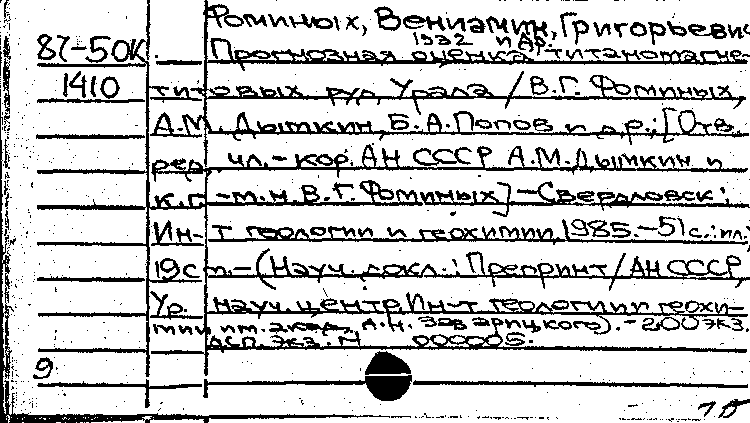 Фоминых, Вениамин, Григорьевич
1932 и др.
87-50К Прогнозная оценка титаномагне-
1410 титовых руд Урала / В.Г. Фоминых,
А.М. Дымкин, Б.А. Попов и др.; [Отв.
ред. чл.-кор. АН СССР А.М. Дымкин и
к.г.-м.н. В.Г. Фоминых] - Свердловск:
Ин-т геологии и геохимии, 1985. - 51 с.: ил.;
19 см. - (Науч. докл.: Препринт / АН СССР,
Ур. науч. центр, Ин-т геологии и геохи-
мии им. акад. А.Н. Заварицкого). - 200 экз.
ДСП. Экз. N 000005.
9